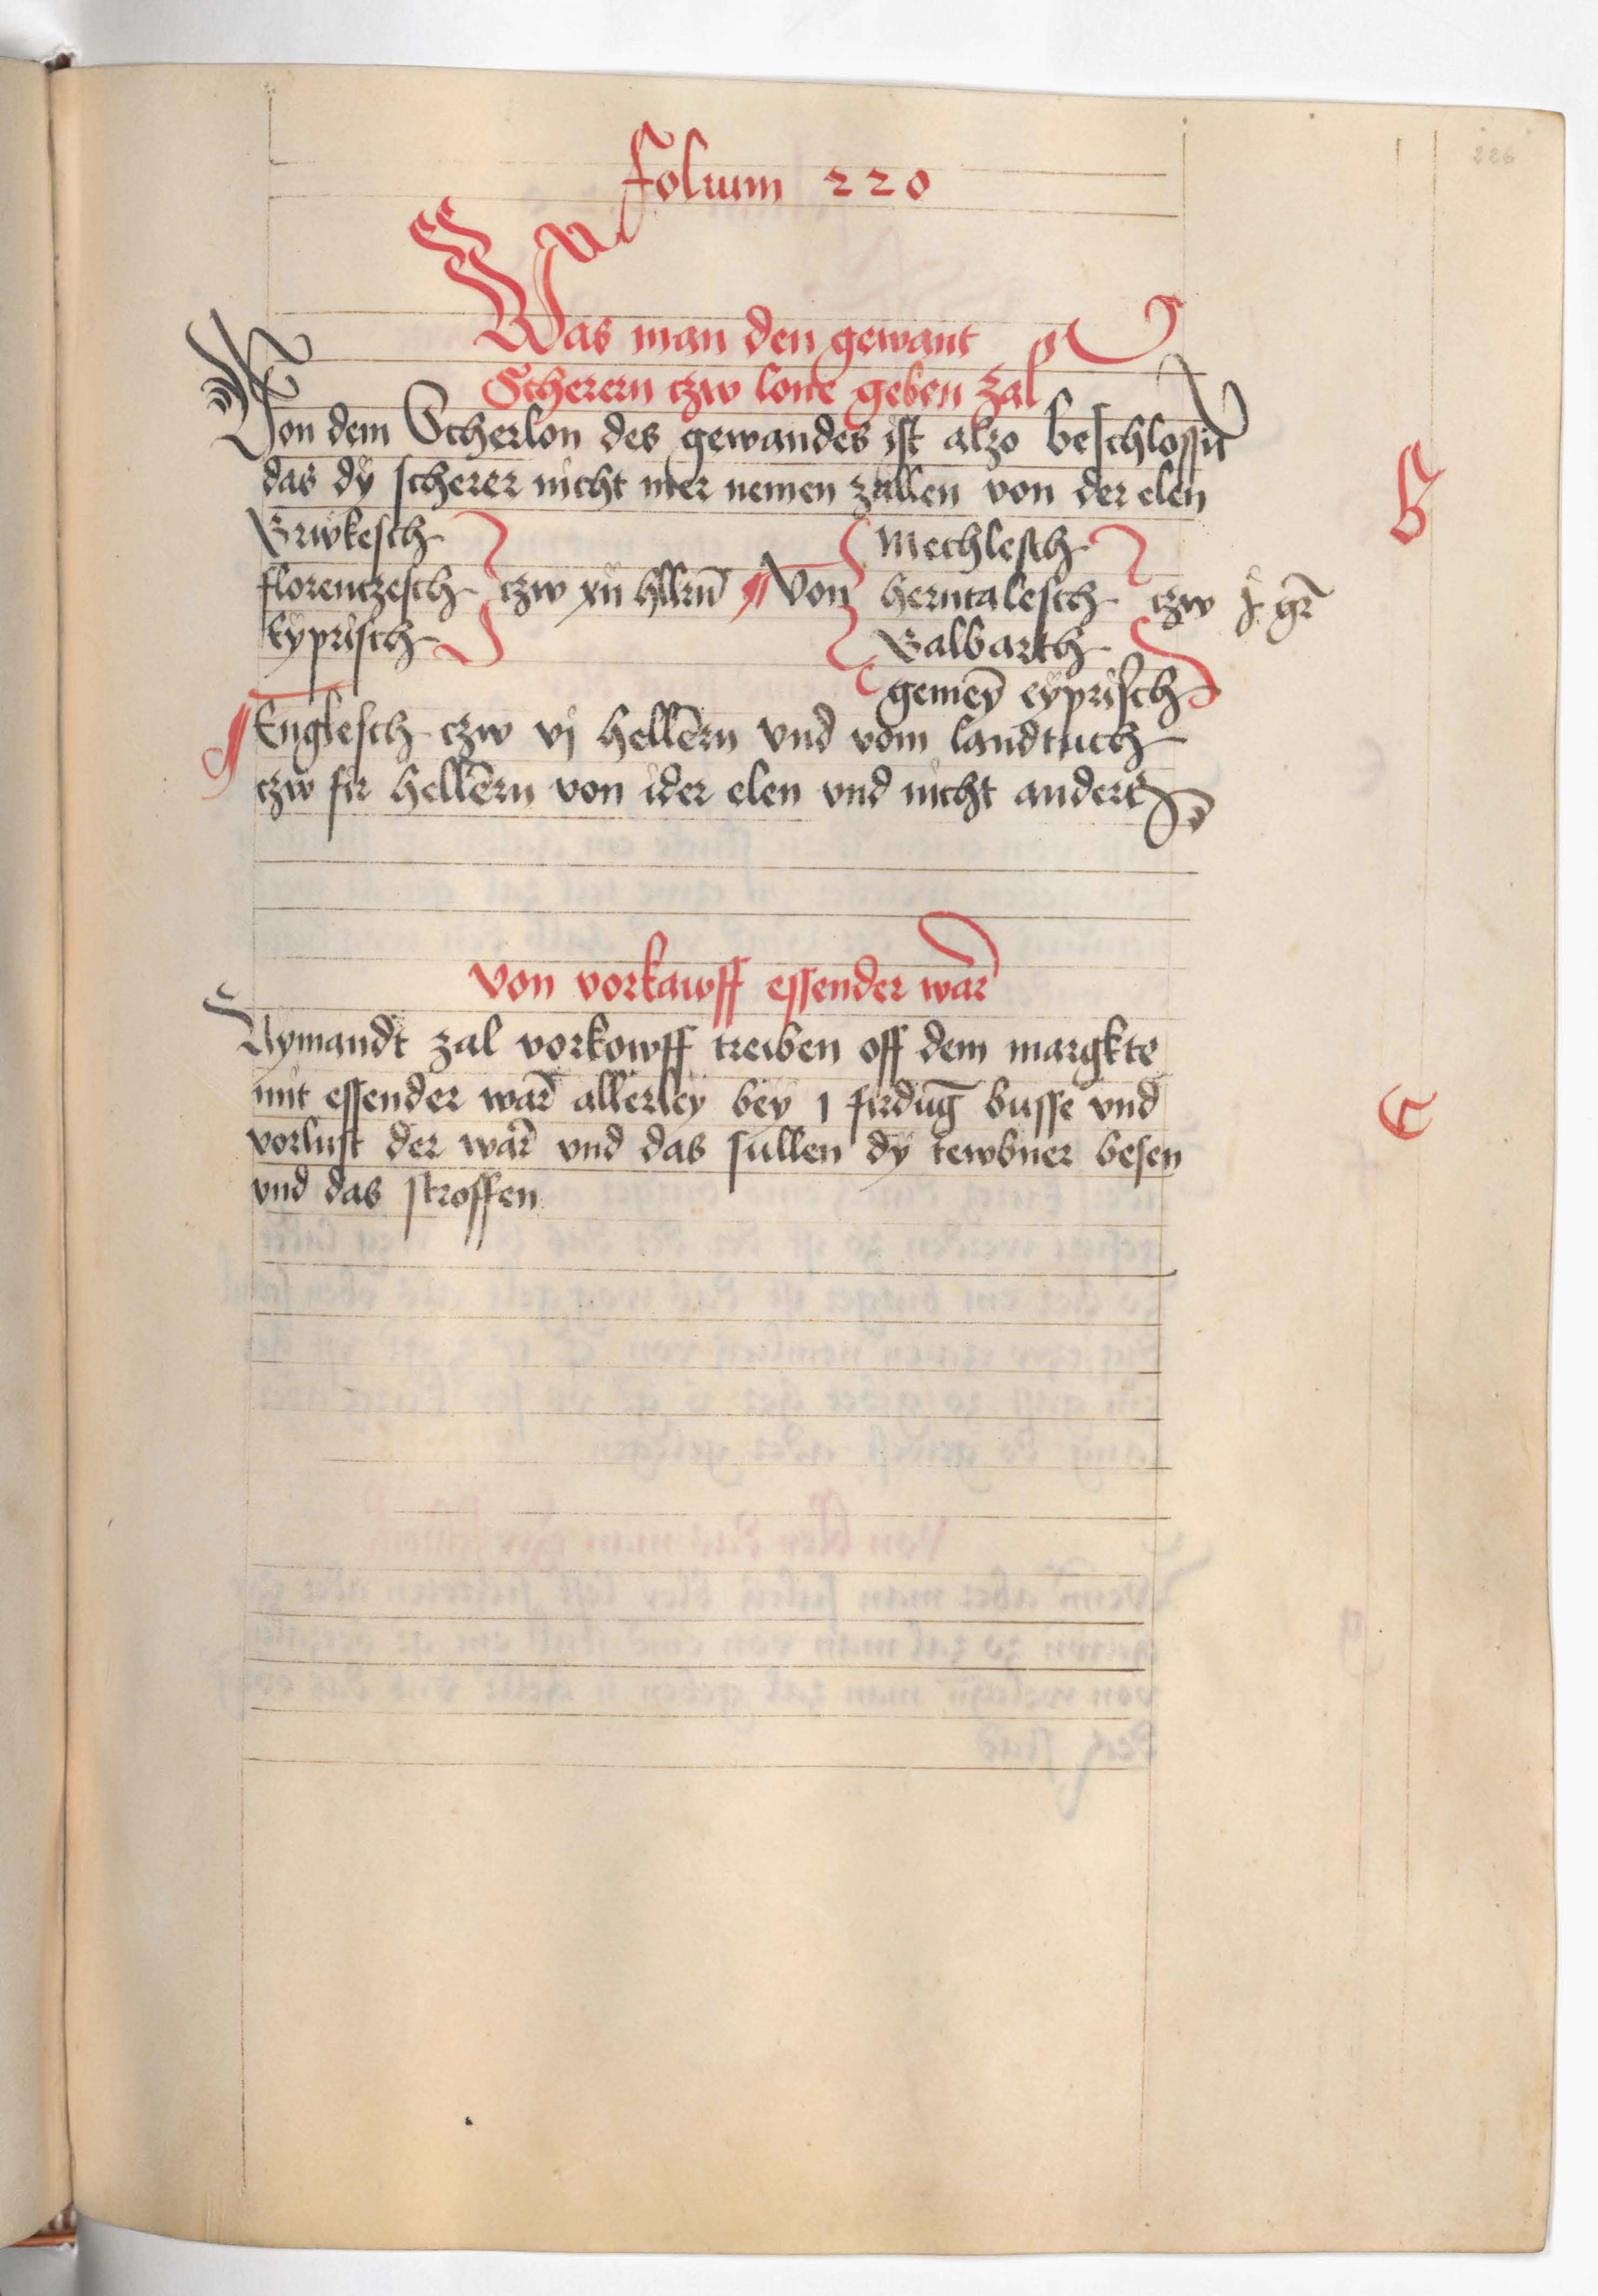 folium 220
226
Was man den gewant
Scherern czw lone geben zal
Von dem Scherlon des gewandes ist alzo beschlossñ
das dÿ scherer nicht mer nemen zullen von der elen
B
Brwkesch
florenczesch czw xii hllrn̄ Von
Eyprisch
Mechlesch
herntalesch czw j gr̄
Balbarth
gemeȳ eyprisch
Englesch czw vj hellērn vnd vom landtuch
czw fir hellērn von ider elen vnd nicht anders
von vorkawff essender war̄
Nymandt zal vorkowff treiben off dem margkte
mit essender war̄ allerley bey 1 firdūg busse vnd
C
vorlust der war̄ vnd das sullen dÿ tewbner besen
vnd das stroffen